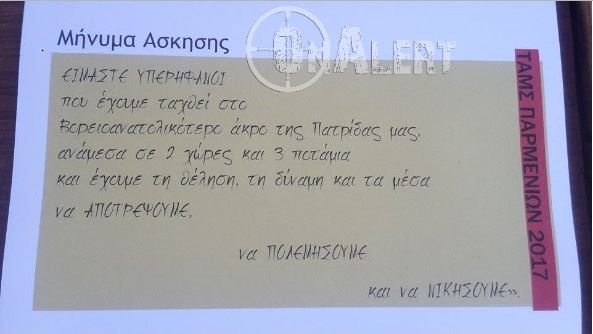 Μήνυμα Άσκησης
ONALERT
ΕΙΜΑΣΤΕ ΥΠΕΡΗΦΑΝΟΙ
που έχουμε ταχθεί στο
Βορειοανατολικότερο άκρο της Πατρίδας μας,
ανάμεσα σε 2 χώρες και 3 ποτάμια
και έχουμε τη θέληση, τη δύναμη και τα μέσα
να ΑΠΟΤΡΕΨΟΥΜΕ,
να ΠΟΛΕΜΗΣΟΥΜΕ
και να ΝΙΚΗΣΟΥΜΕ».
ΤΑΜΣ ΠΑΡΜΕΝΙΩΝ 2017